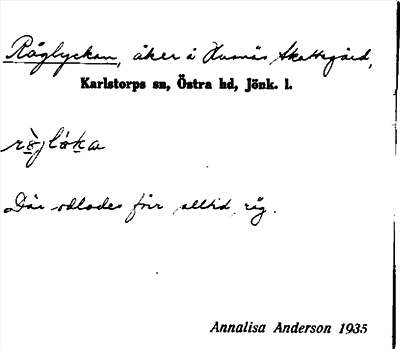 Råglyckan, åker å Husnäs Skattegård,
Karlstorps sn, Östra hd, Jönk. l.
Där odlades förr alltid råg.
Annalisa Anderson 1935